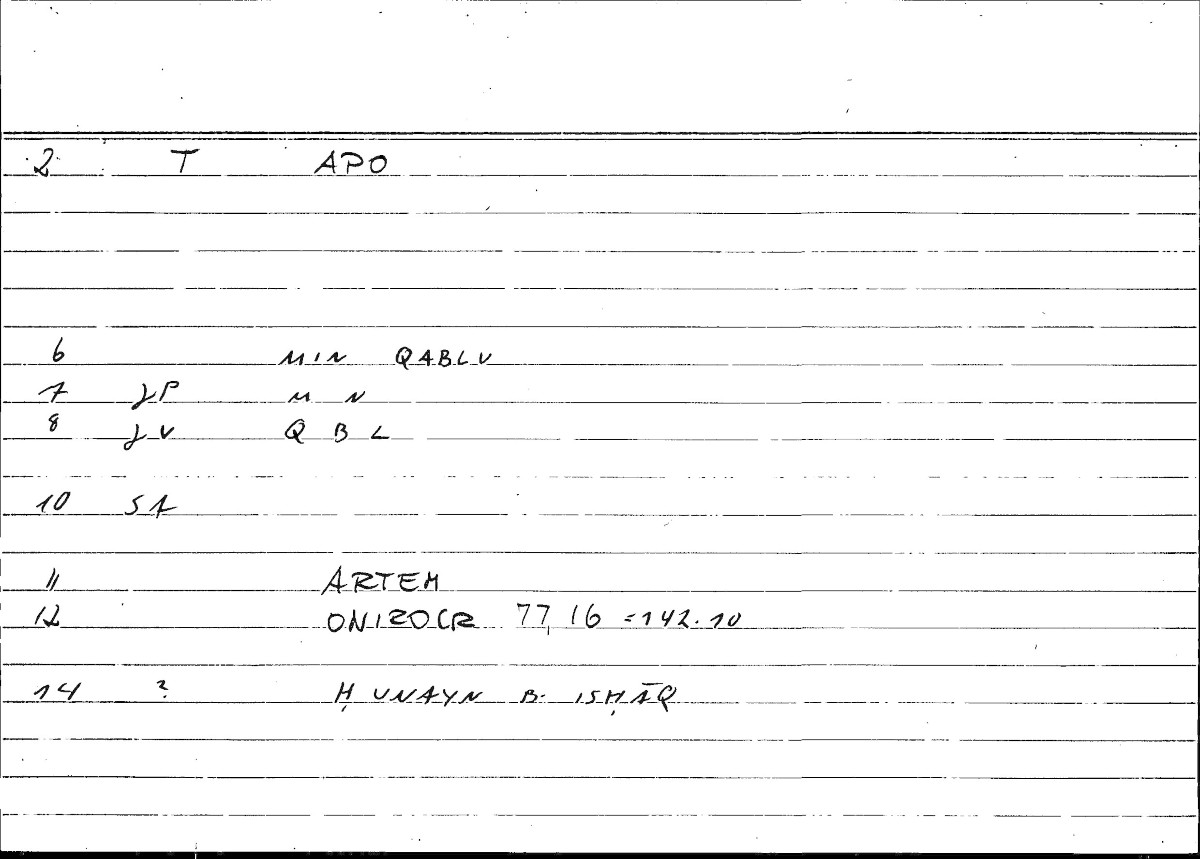 2 T APO
6 MIN QABLU
7 γP M N
8 γV Q B L
10 S1
11 ARTEM
12 ONIROCR 77,16 = 142.10
14 ? ḤUNAYN B. ISḤĀQ